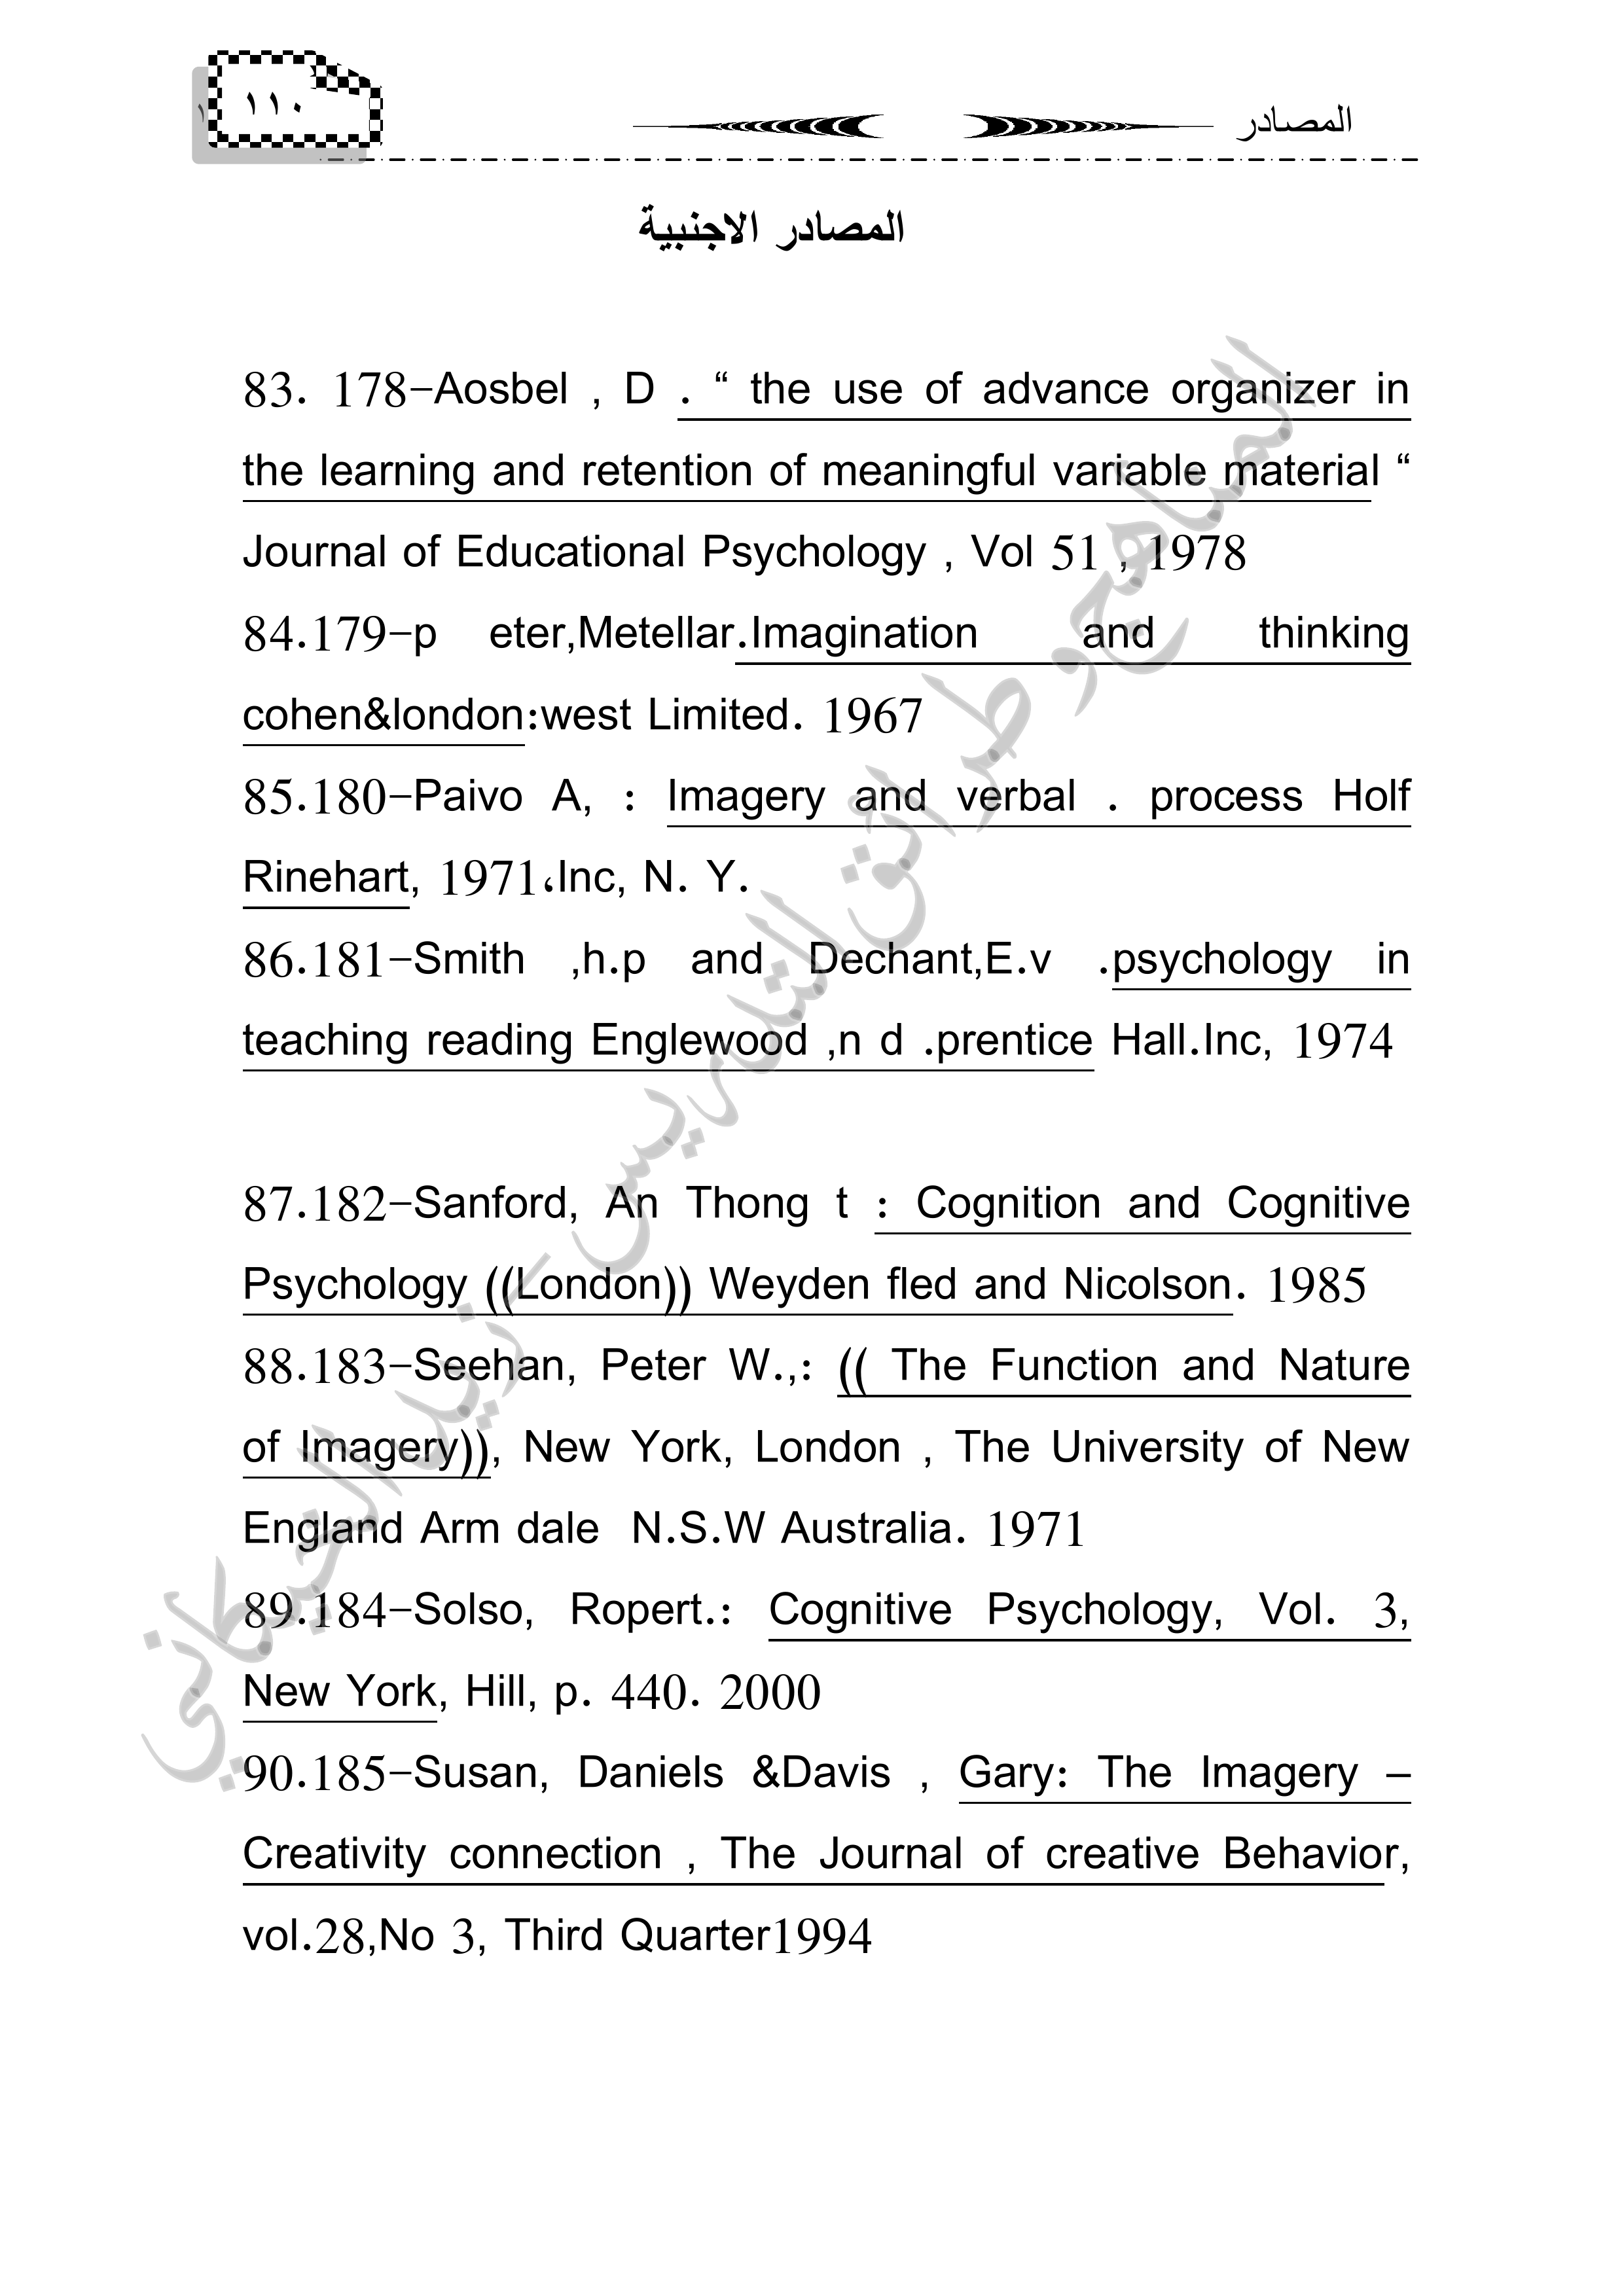 المصادر
١١٠
المصادر الاجنبية
83. 178-Aosbel , D . “ the use of advance organizer in
the learning and retention of meaningful variable material “
Journal of Educational Psychology , Vol 51 , 1978
84.179-p eter,Metellar.Imagination and thinking
cohen&london:west Limited. 1967
85.180-Paivo A, : Imagery and verbal . process Holf
Rinehart, 1971،Inc, N. Y.
86.181-Smith ,h.p and Dechant,E.v .psychology in
teaching reading Englewood ,n d .prentice Hall.Inc, 1974
87.182-Sanford, An Thong t : Cognition and Cognitive
Psychology ((London)) Weyden fled and Nicolson. 1985
88.183-Seehan, Peter W.,: (( The Function and Nature
of Imagery)), New York, London , The University of New
England Arm dale N.S.W Australia. 1971
89.184-Solso, Ropert.: Cognitive Psychology, Vol. 3,
New York, Hill, p. 440. 2000
90.185-Susan, Daniels &Davis , Gary: The Imagery –
Creativity connection , The Journal of creative Behavior,
vol.28,No 3, Third Quarter1994
المناهج و طرائق التدريس - زيد الخيكاني